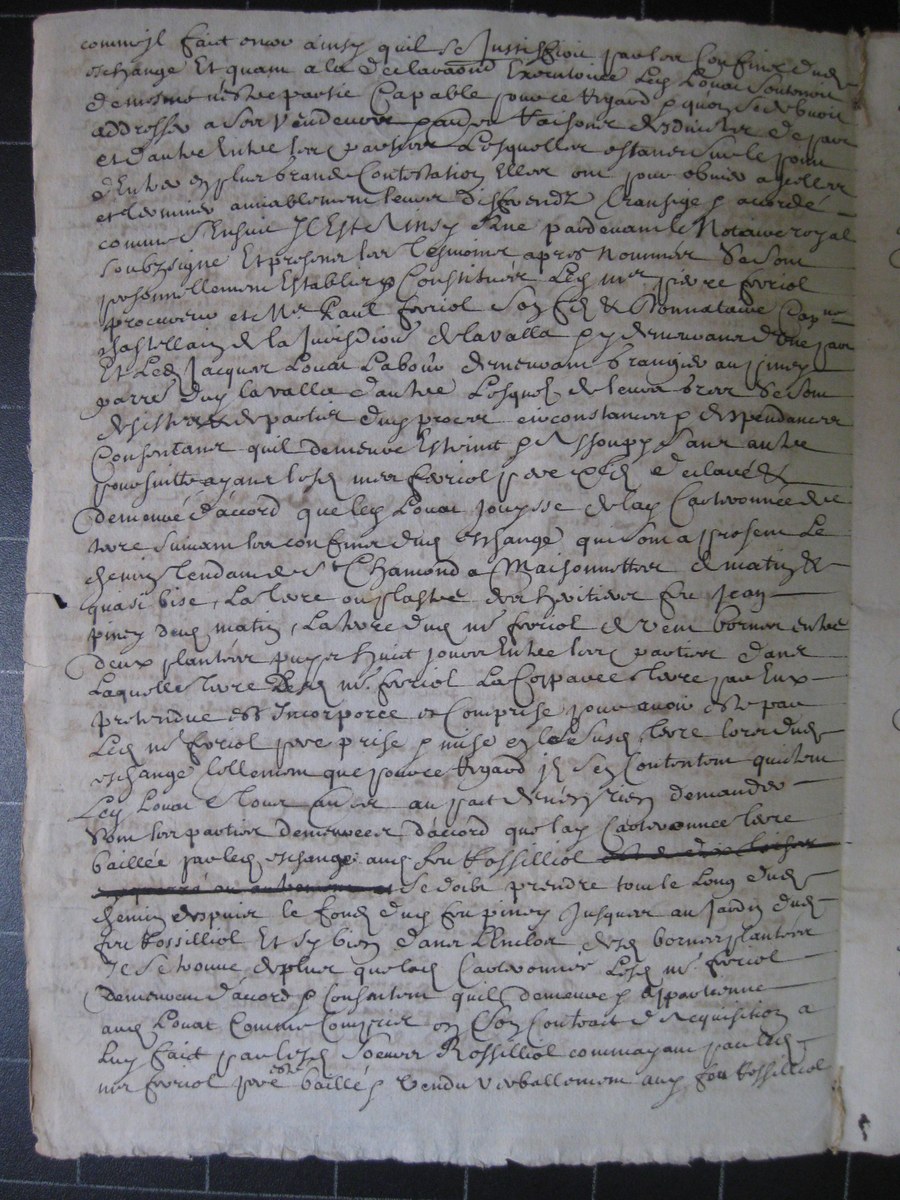 comme Il fait encor ainsy quil se Justiffioit par les Confins dud
eschange Et quant a la declaraoñ Executoire Led Louat soutenoit
de mesme nestre partie Capable pour ce Regard & quon se debvoit
addresser a ses vendeurs par les Raisons desduictes de part
et dautre Entre les parties Lesquelles estants sur le point
d'Entrer en plus grande Contestation Elles ont pour obvier a icelles
et terminer amiablement leurs differendz transigé & accordé
comme s'Ensuit Il Est Ainsy Que pardevant le Notaire royal
soubzsigné Et presents les tesmoins apres Nommés Se sont
personnellement Establis & Constitués Led mr pierre fevriol
procureur et Mr Paul fevriol son filz & Donnataire Capne
chastellain de la Jurisdiõn de lavalla & y demeurants d'une part
Et Led Jacques Louat Labour demeurant grangier au piney
parre dud lavalla d'autre Lesquelz de leurs grez Se sont
desistes & departis dud procez circonstances & despendances
Consentant quil demeure Estaint & Assoupy sans autre
poursuitte ayant lesd mrs fevriol pere & filz declaré &
demeuré d'accord que led Louat Jouysse de lad Cartonnée de
terre suivant les confins dud eschange qui sont a present Le
chemin tendant de St Chamond a Maisonnettes de matin &
quasi bise, La terre ou plastre des heritiers feu Jean
piney deux matin, La terre dud mr fevriol de vent bornes entre
deux plantées puys huit jours Entre les parties dans
Laquelle terre Led mr fevriol La Couppée terre par Eux
pretendue est Incorporée et Comprise pour avoir esté par
Led mr fevriol pere prise & mise en la susd terre lors dud
eschange tellement que pour ce Regard Ils s'en Contentent quictent
Led Louat & tous autres au fait de n'en rien demander
Sont les parties demeurees d'accord que lad Cartonnée terre
baillée par led eschange aud feu Rossilliol
se doibt prendre tout le Long dud
chemin despuis le fonds dud feu piney Jusques au Jardin dud
feu Rossilliol Et sy bien dans L'Enclos desd bornes plantées
Il se trouve deplus que lad Cartonnée Lesd mrs fevriol
demeurent d'accord & Consentent quil demeure & Appartienne
aud Louat Comme Compris en son Contrait d'Acquisition a
Luy fait par lesd soeurs Rossilliol comm'ayant par led
mr fevriol pere esté baillé & vendu verballement aud feu Rossilliol